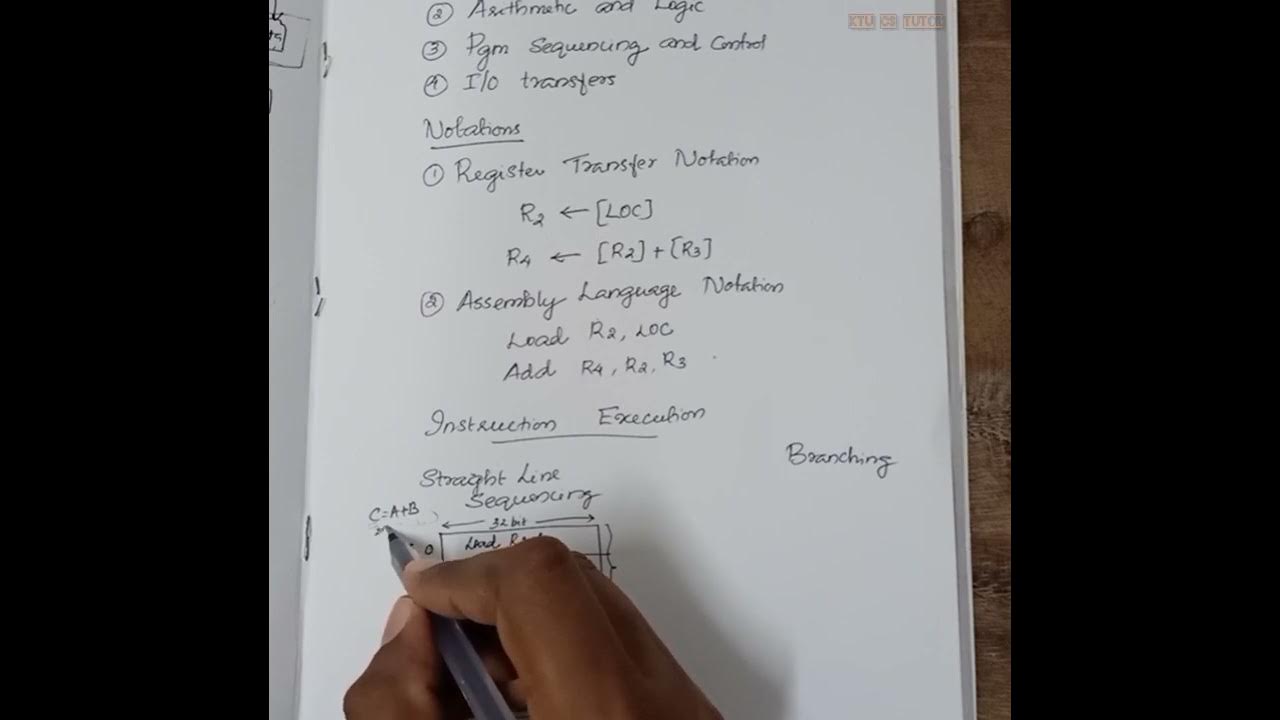 KTU CS TUTOR
② Arithmetic and Logic
③ Pgm Sequencing and Control
④ I/O transfers
Notations
① Register Transfer Notation
R2 ← [LOC]
R4 ← [R2] + [R3]
② Assembly Language Notation
Load R2, LOC
Add R4, R2, R3
Instruction Execution
Branching
Straight Line
Sequencing
C=A+B
32 bit
0 Load